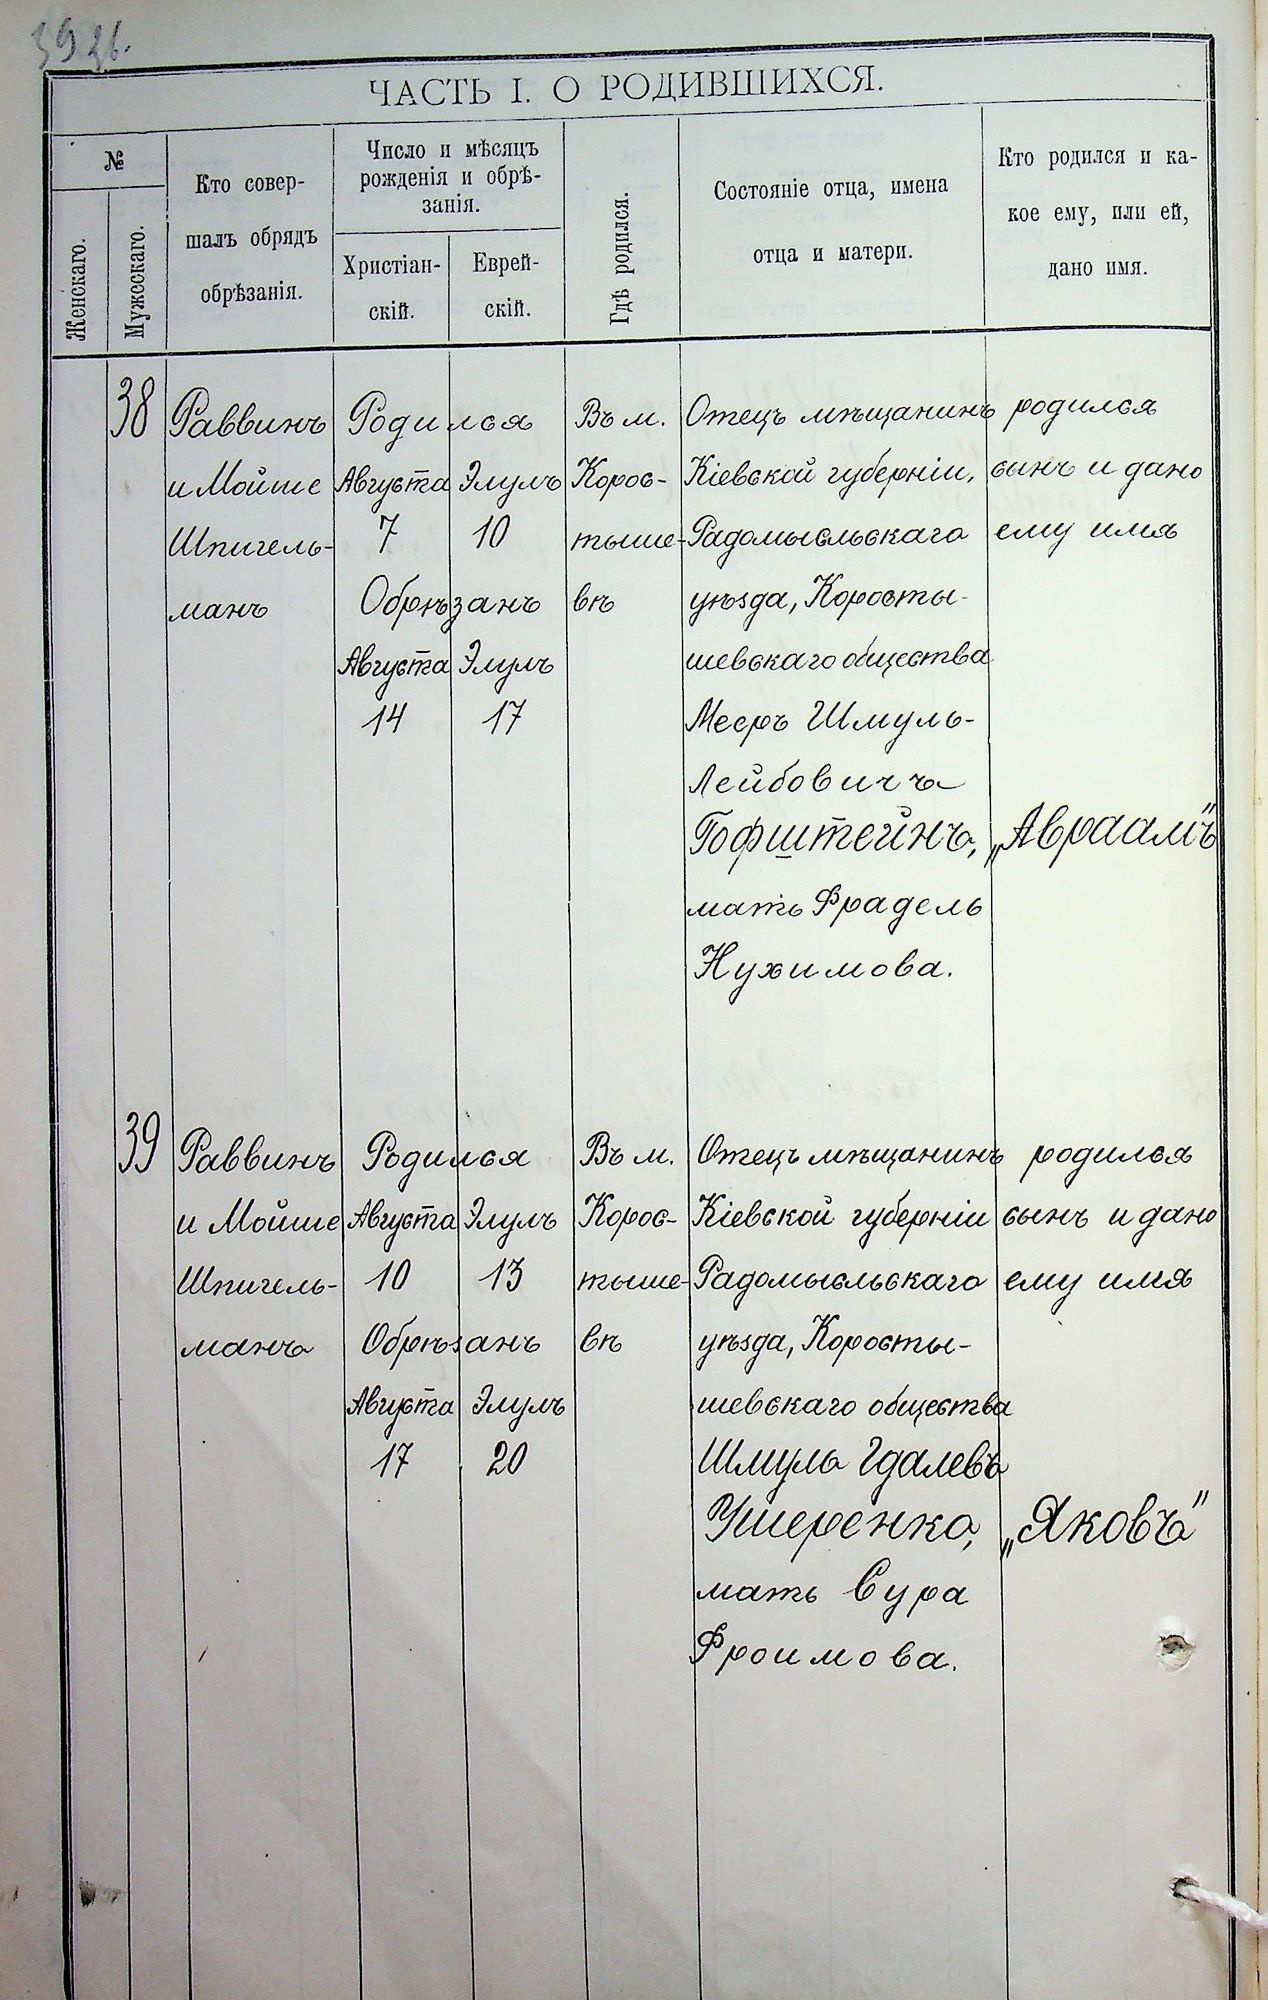 ЧАСТЬ I. О РОДИВШИХСЯ.
№
Женскаго.
Мужескаго.
Кто совер-
шалъ обрядъ
обрѣзанія.
Число и мѣсяцъ
рожденія и обрѣ-
занія.
Христіан-
скій.
Еврей-
скій.
Гдѣ родился.
Состояніе отца, имена
отца и матери.
Кто родился и ка-
кое ему, или ей,
дано имя.
38
Раввинъ
и Мойше
Шпигель-
манъ
Родился
Августа Элулъ
7 10
Обрѣзанъ
Августа Элулъ
14 17
Въ м.
Корос-
тыше-
вѣ
Отецъ мѣщанинъ
Кіевской губерніи,
Радомысльскаго
уѣзда, Коросты-
шевскаго общества
Мееръ Шмуль-
Лейбовичъ
Гофштейнъ,
мать Фрадель
Нухимова.
родился
сынъ и дано
ему имя
„Авраамъ"
39
Раввинъ
и Мойше
Шпигель-
манъ
Родился
Августа Элулъ
10 13
Обрѣзанъ
Августа Элулъ
17 20
Въ м.
Корос-
тыше-
вѣ
Отецъ мѣщанинъ
Кіевской губерніи
Радомысльскаго
уѣзда, Коросты-
шевскаго общества
Шмуль Гдалевъ
Ушеренко,
мать Сура
Фроимова.
родился
сынъ и дано
ему имя
„Яковъ"